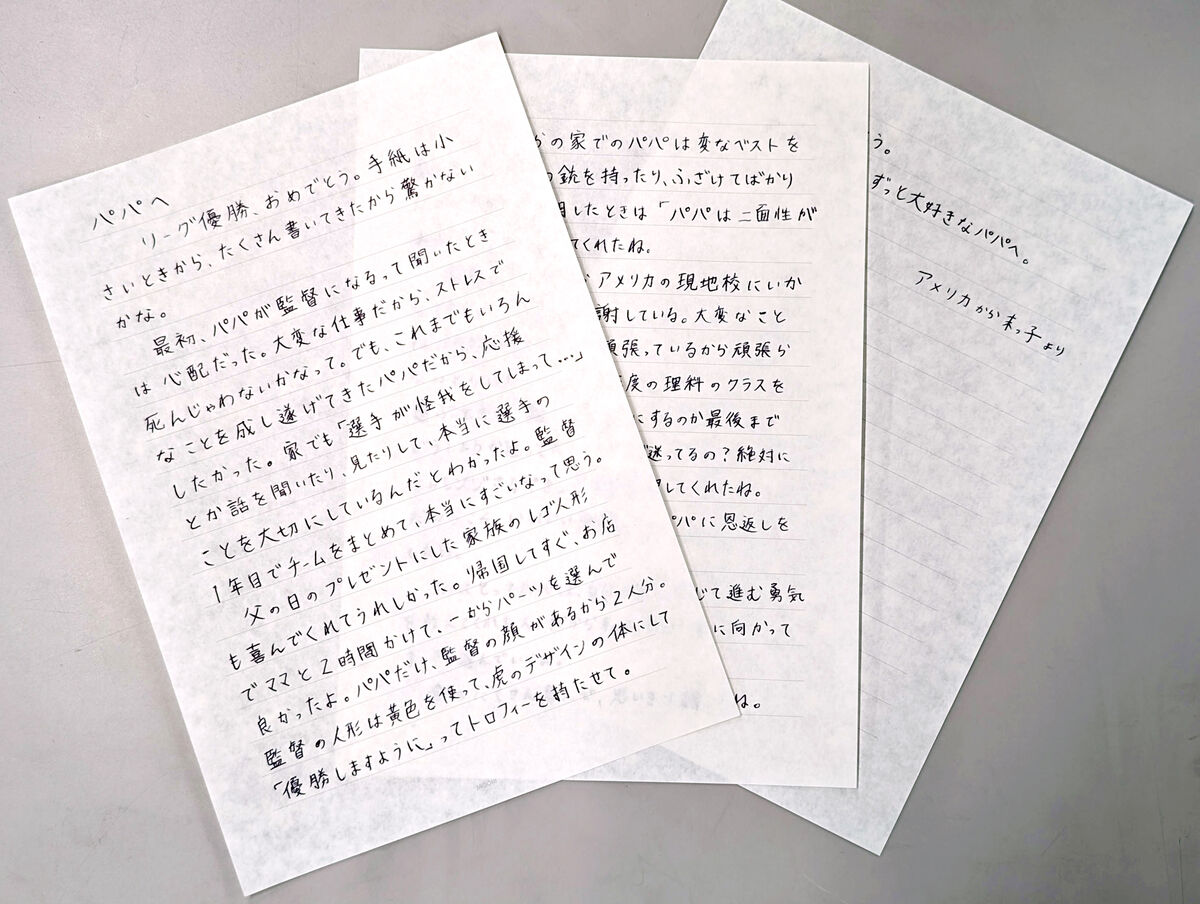 パパへ
リーグ優勝、おめでとう。手紙は小
さいときから、たくさん書いてきたから驚かない
かな。
最初、パパが監督になるって聞いたとき
は心配だった。大変な仕事だから、ストレスで
死んじゃわないかなって。でも、これまでもいろん
なことを成し遂げてきたパパだから、応援
したかった。家でも「選手が怪我をしてしまって…」
とか話を聞いたり、見たりして、本当に選手の
ことを大切にしているんだとわかったよ。監督
1年目でチームをまとめて、本当にすごいなって思う。
父の日のプレゼントにした家族のレゴ人形
も喜んでくれてうれしかった。帰国してすぐ、お店
でママと2時間かけて、一からパーツを選んで
良かったよ。パパだけ、監督の顔があるから2人分。
監督の人形は黄色を使って、虎のデザインの体にして
「優勝しますように」ってトロフィーを持たせて。
らの家でのパパは変なベストを
の銃を持ったり、ふざけてばかり
したときは「パパは二面性が
てくれたね。
アメリカの現地校にいか
謝している。大変なこと
頑張っているから頑張ら
度の理科のクラスを
にするのか最後まで
送ってるの?絶対に
してくれたね。
パパに恩返しを
じて進む勇気
に向かって
ね。
う。
ずっと大好きなパパへ。
アメリカから末っ子より